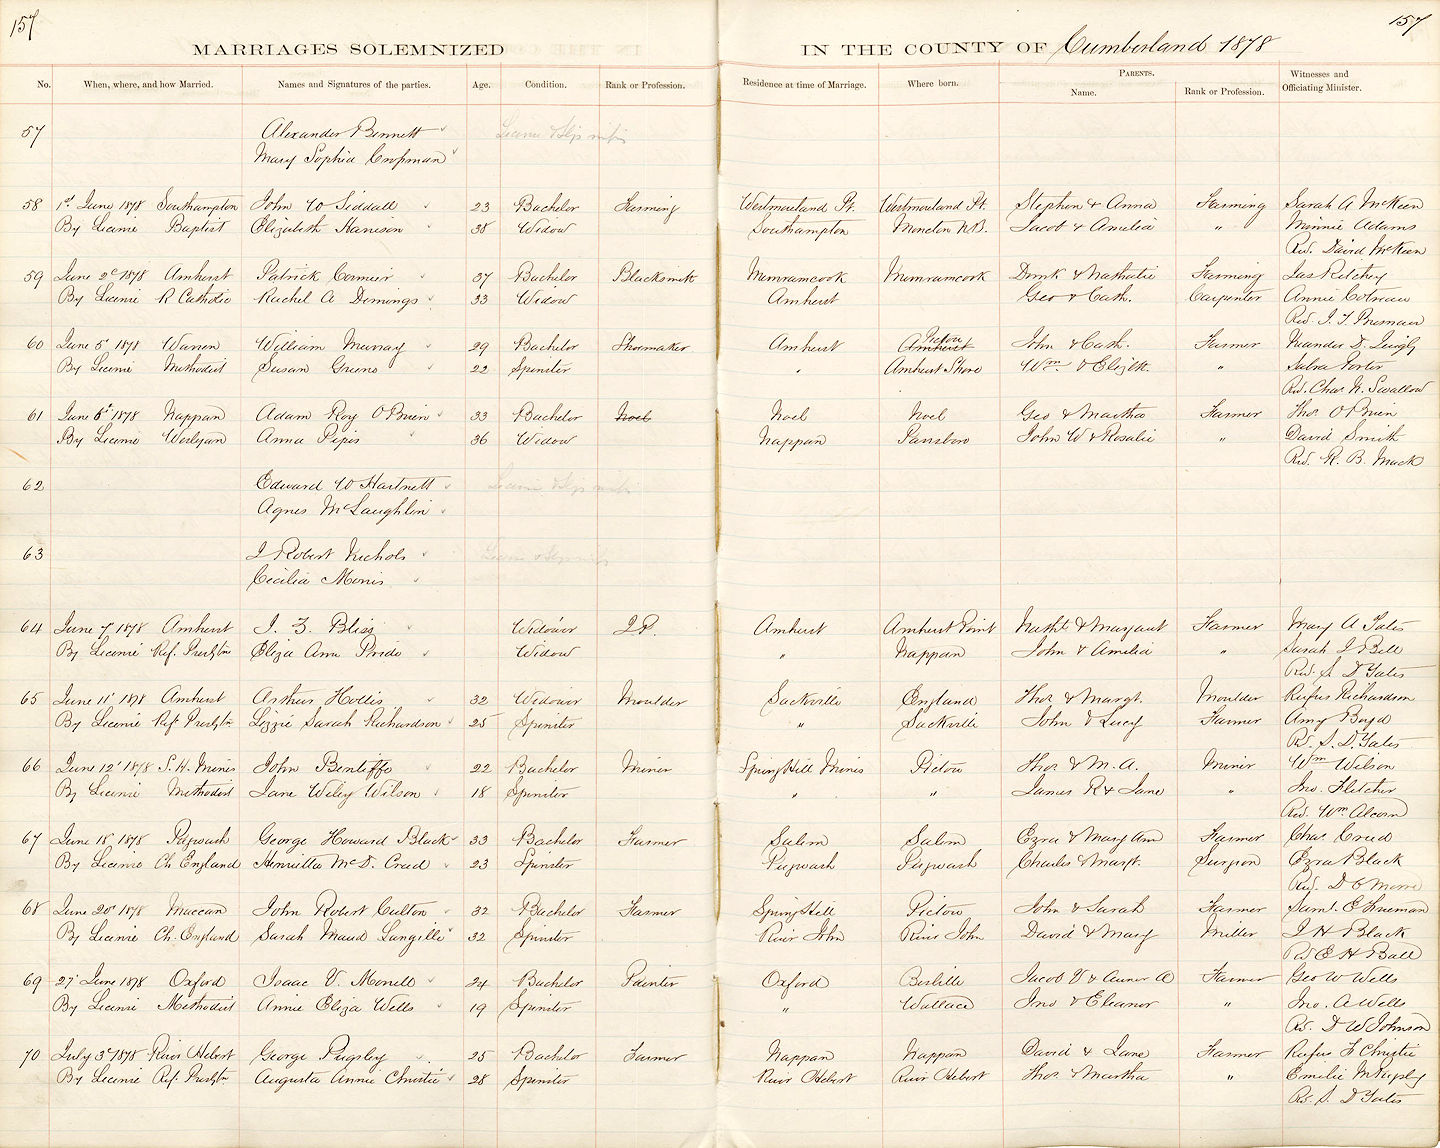 157
157
MARRIAGES SOLEMNIZED IN THE COUNTY OF Cumberland 1878
No. When, where, and how Married. Names and Signatures of the parties. Age. Condition. Rank or Profession. Residence at time of Marriage. Where born. PARENTS. Name. Rank or Profession. Witnesses and Officiating Minister.
57 Alexander Bennett
Mary Sophia Crossman
58 1st June 1878 Southampton John W Siddall 23 Bachelor Farming Westmorland Pt. Westmorland Pt Stephen & Anna Farming Sarah A McKeen
By Licence Baptist Elizabeth Harrison 38 Widow Southampton Moncton N.B. Jacob & Amelia " Minnie Adams
Rev. David McKeen
59 June 2d 1878 Amherst Patrick Cormier 37 Bachelor Blacksmith Memramcook Memramcook & Nathalie Farming Jas Kitchey
By Licence R Catholic Rachel A Demings 33 Widow Amherst Geo & Cath. Carpenter Annie
Rev.
60 June 5 1878 Warren William Murray 29 Bachelor Shoemaker Amherst Pictou Amherst John & Cath. Farmer
By Licence Methodist Susan Greeno 22 Spinster " Amherst Shore Wm & Elizth. " Porter
Rev. Chas. N. Swallow
61 June 6t 1878 Nappan Adam Roy O'Brien 33 Bachelor Noel Noel Noel Geo & Martha Farmer Thos O'Brien
By Licence Wesleyan Anna Pipes 36 Widow Nappan Parrsboro John W & Rosalie " David Smith
Rev. R. B. Mack
62 Edward W Hartnett
Agnes McLaughlin
63 J Robert Nichols
Cecilia Morris
64 June 7 1878 Amherst J. F. Bliss Widower J.P. Amherst Amherst Point Nathl & Margaret Farmer Mary A Yates
By Licence Ref. Presbytn Eliza Ann Prido Widow " Nappan John & Amelia " Sarah J Bell
Rev. S. D Yates
65 June 11 1878 Amherst Arthur Hollis 32 Widower Moulder Sackville England Thos & Margt. Moulder Rufus Richardson
By Licence Ref. Presbytn Lizzie Sarah Richardson 25 Spinster " Sackville John & Lucy Farmer Amy Boyd
Rev. S. D. Yates
66 June 12 1878 S. H. Mines John Bentliffe 22 Bachelor Miner Spring Hill Mines Pictou Thos & M. A. Miner Wm Wilson
By Licence Methodist Jane Wiley Wilson 18 Spinster " " James R & Jane " Jno. Fletcher
Rev. Wm Alcorn
67 June 18 1878 Pugwash George Howard Black 33 Bachelor Farmer Salem Salem Ezra & Mary Ann Farmer Chas. Creed
By Licence Ch England Henrietta McD. Creed 23 Spinster Pugwash Pugwash Charles & Margt. Surgeon Ezra Black
Rev. D C Moore
68 June 20 1878 Maccan John Robert Culton 32 Bachelor Farmer Spring Hill Pictou John & Sarah Farmer Saml. E Freeman
By Licence Ch. England Sarah Maud Langille 32 Spinster River John River John David & Mary Miller J H Black
Rev E H Ball
69 27 June 1878 Oxford Isaac V. Morrell 24 Bachelor Painter Oxford Jacob V & A Farmer Geo W Wells
By Licence Methodist Annie Eliza Wells 19 Spinster " Wallace Jno & Eleanor " Jno. A Wells
Rev. D W Johnson
70 July 3d 1878 River Hebert George Pugsley 25 Bachelor Farmer Nappan Nappan David & Jane Farmer Rufus F Christie
By Licence Ref. Presbytn Augusta Annie Christie 28 Spinster River Hebert River Hebert Thos & Martha " Emilie M Pugsley
Rev. S. D Yates